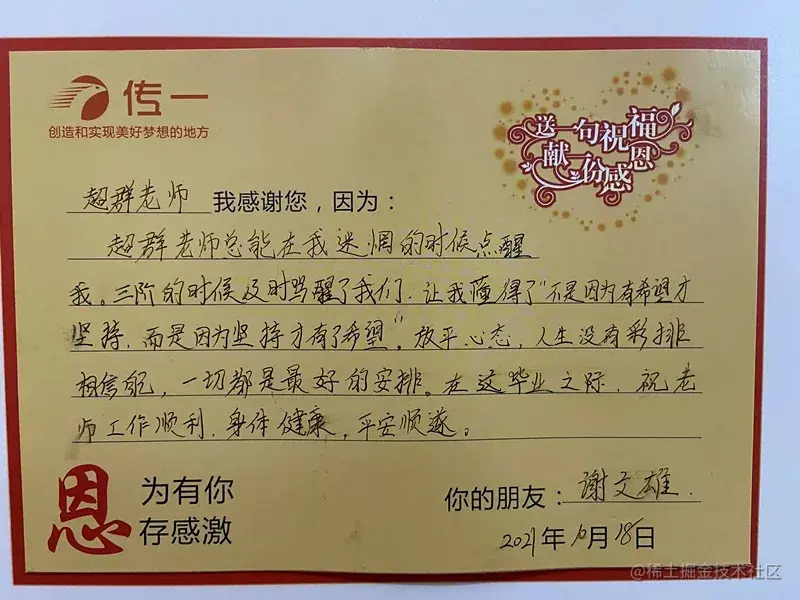 传一
创造和实现美好梦想的地方
送一句祝福
献一份感恩
超群老师 我感谢您，因为：
超群老师总能在我迷惘的时候点醒
我。三阶的时候及时骂醒了我们，让我懂得了“不是因为有希望才
坚持，而是因为坚持才有了希望”。放平心态，人生没有彩排
相信自己，一切都是最好的安排。在这毕业之际，祝老
师工作顺利，身体健康，平安顺遂。
恩 为有你
存感激
你的朋友：谢文雄．
2021年10月18日
@稀土掘金技术社区